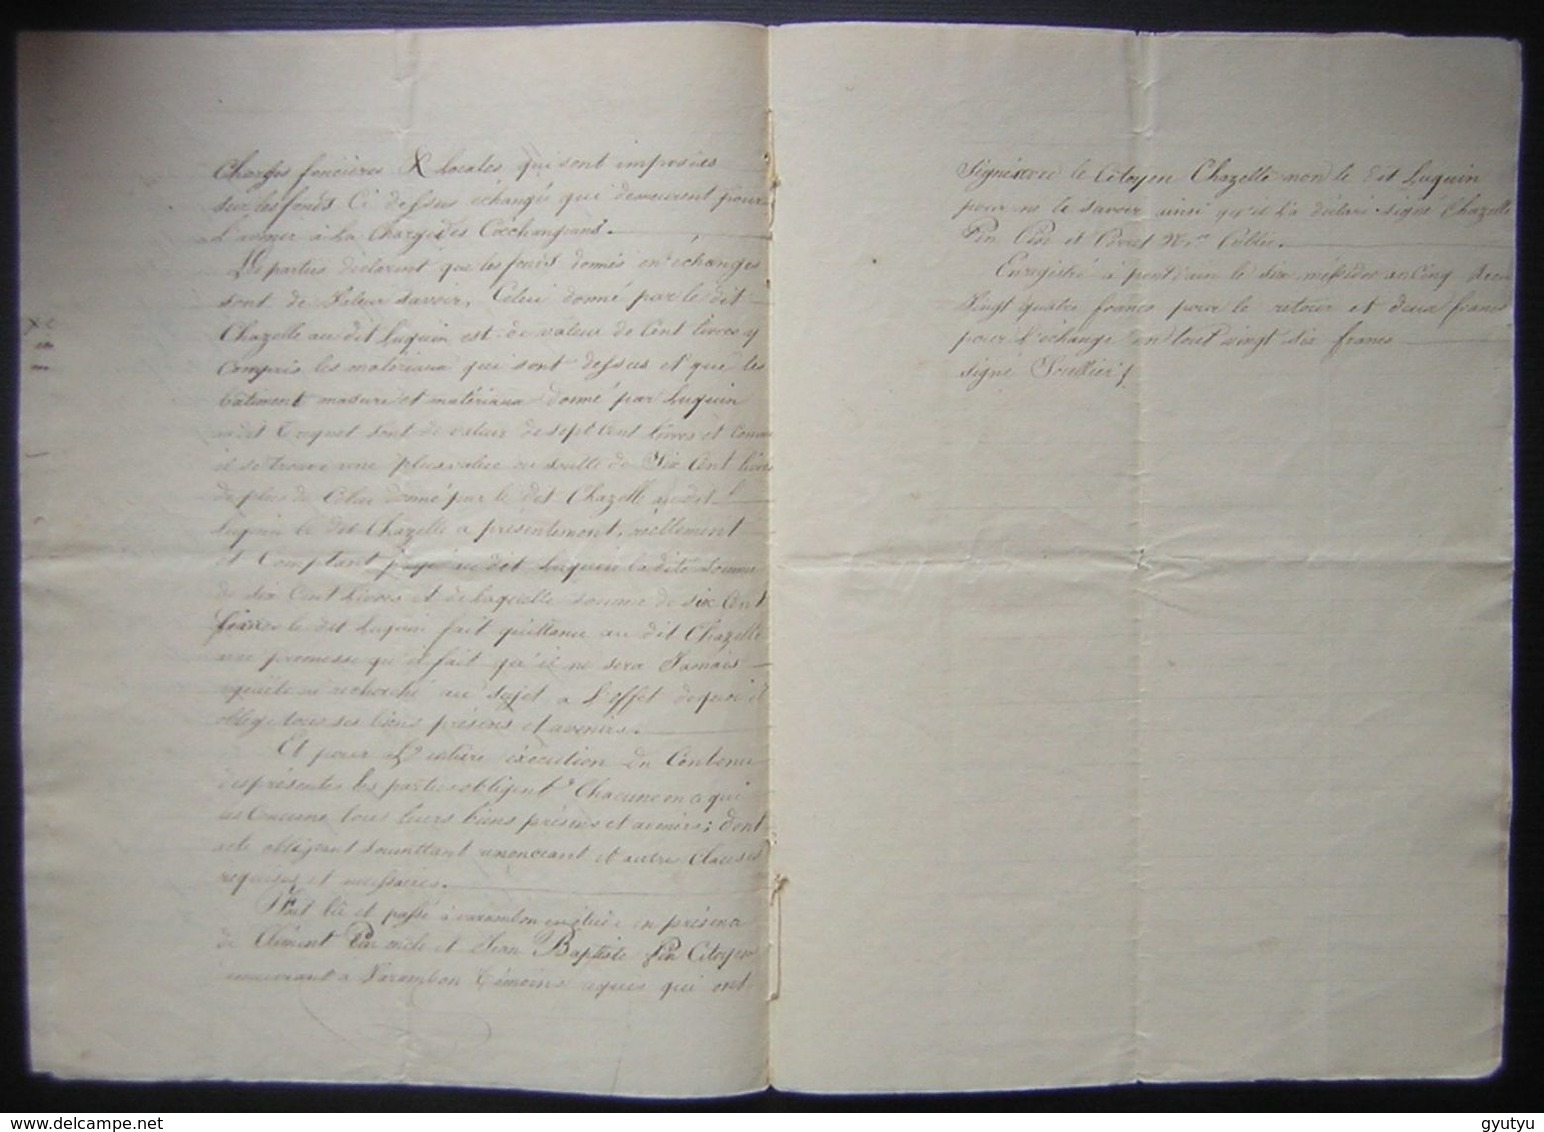 Charges foncières & locales qui sont imposées
sur les fonds Ci dessus échangé qui demeurent pour
L'avenir à La Charge des Coéchangeans.
Les parties déclarent que les fonds donnés en échanges
sont de valeur savoir, Celui donné par le dit
Chazelle au dit Luquin est de valeur de Cent livres y
Compris les matériaux qui sont dessus et que les
batiment masure et matériaux donné par Luquin
au dit sont de valeur de sept Cent livres et comme
il se trouve une plus value ou soulte de Six Cent livres
de plus de Celui donné par le dit Chazelle au dit
Luquin le dit Chazelle a présentement, réellement
et Comptant payé au dit Luquin la dite somme
de six Cent Livres et de laquelle somme de six Cent
livres le dit Luquin fait quittance au dit Chazelle
avec promesse qu'il fait qu'il ne sera Jamais
ni recherché au sujet a L'effet de quoi il
oblige tous ses biens présens et avenirs.
Et pour L'entière exécution du Contenu
des présentes les parties obligent Chacune en ce qui
les Concerne tous leurs biens présens et avenirs; dont
acte obligeant soumettant renonceant et autres Clauses
requises et nécessaires.
Fait lû et passé à varambon en étude en présence
de Clément Pin et Jean Baptiste Pin Citoyens
demeurant a Varambon témoins qui ont
Signé avec le Citoyen Chazelle non le dit Luquin
pour ne le savoir ainsi qu'il L'a déclaré signé Chazelle
Pin Pin et Nre Public.
Enregistré à pont dain le six messidor an Cinq
Vingt quatre francs pour le retour et deux francs
pour L'échange en tout vingt six francs
signé Soullier
gyutyu